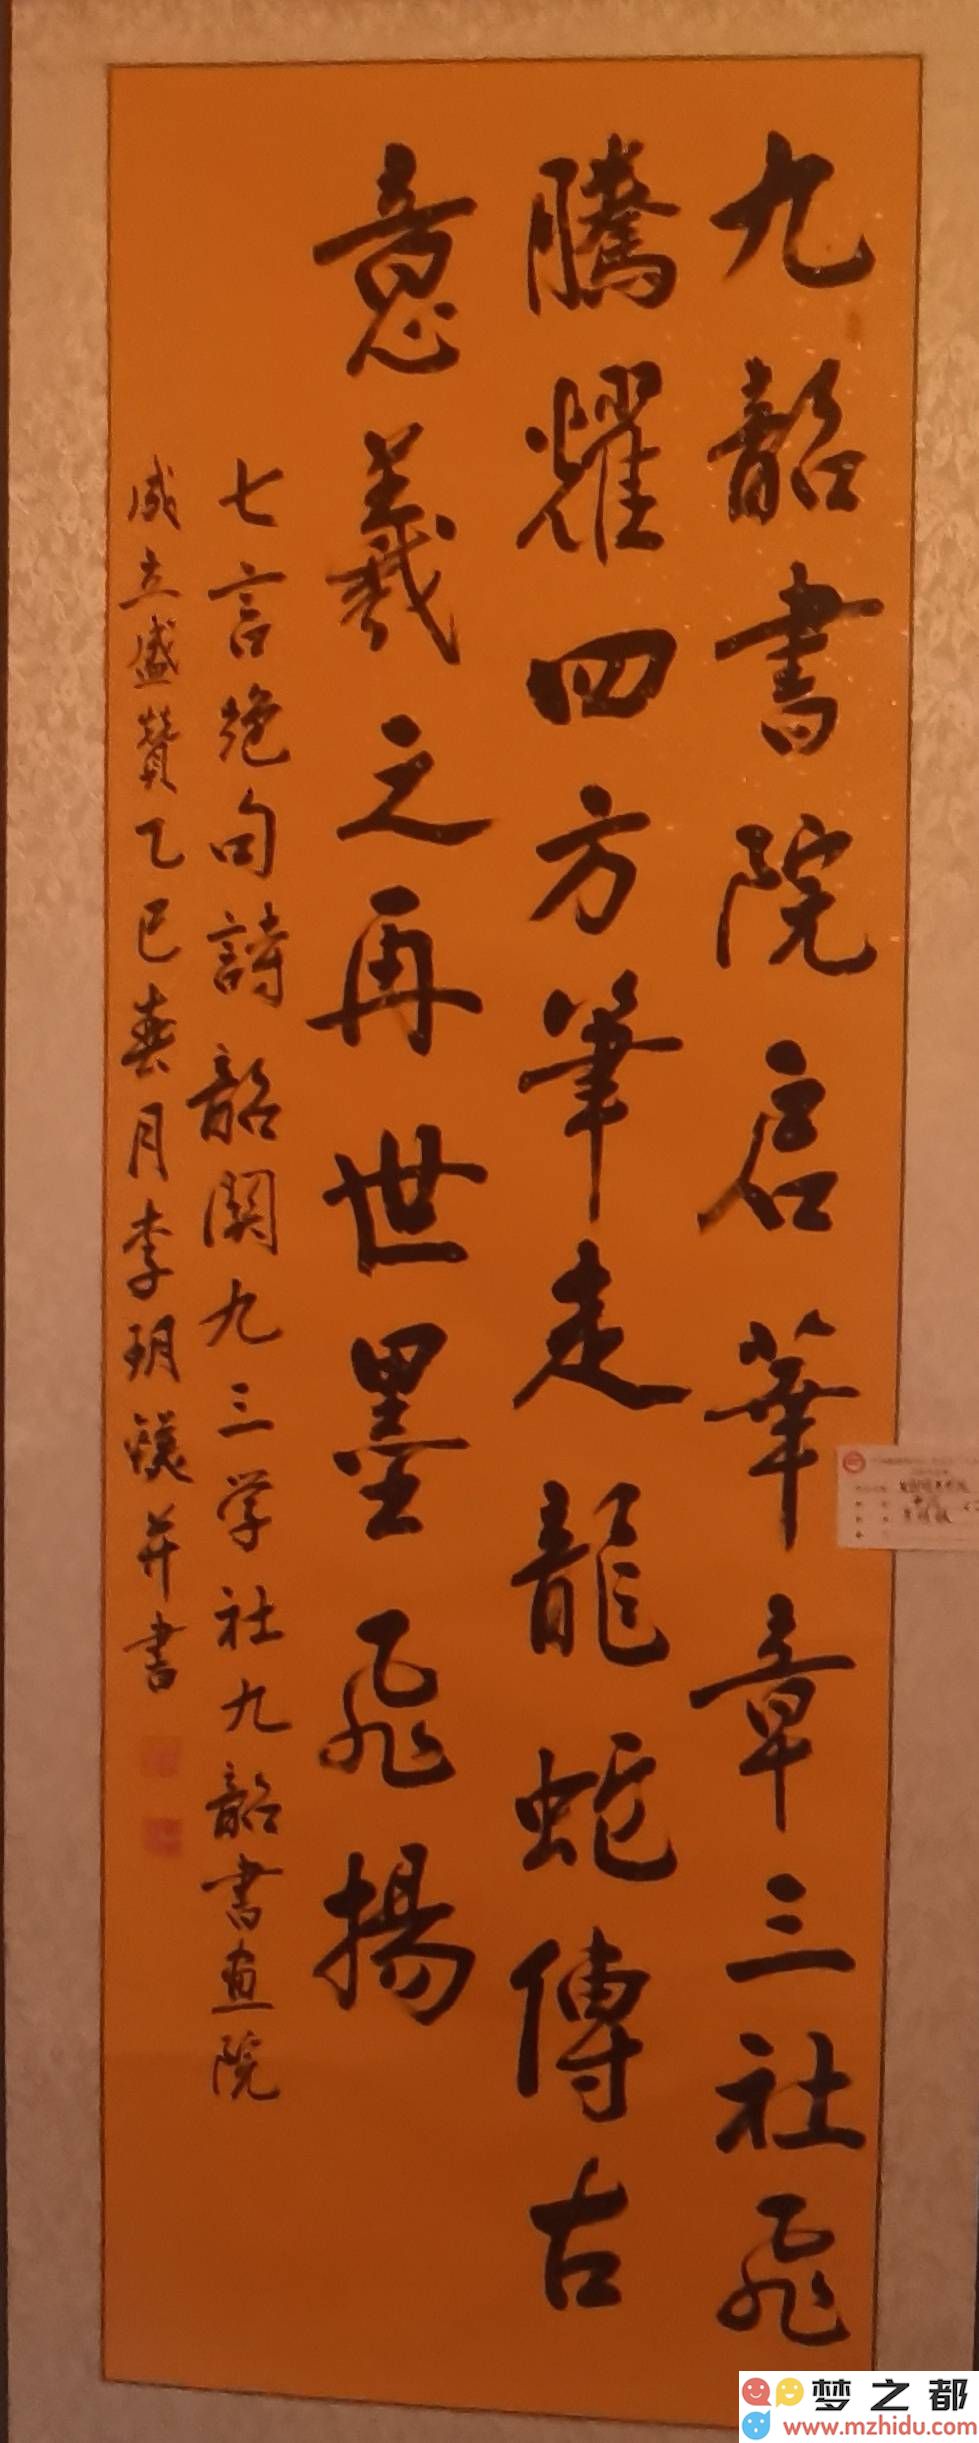 九韶書院启華章三社飛
騰耀四方筆走龍蛇傳古
意羲之再世墨飛揚
七言绝句詩韶関九三学社九韶書画院
成立盛贊乙巳春月李玥鏷并書
梦之都
www.mzhidu.com